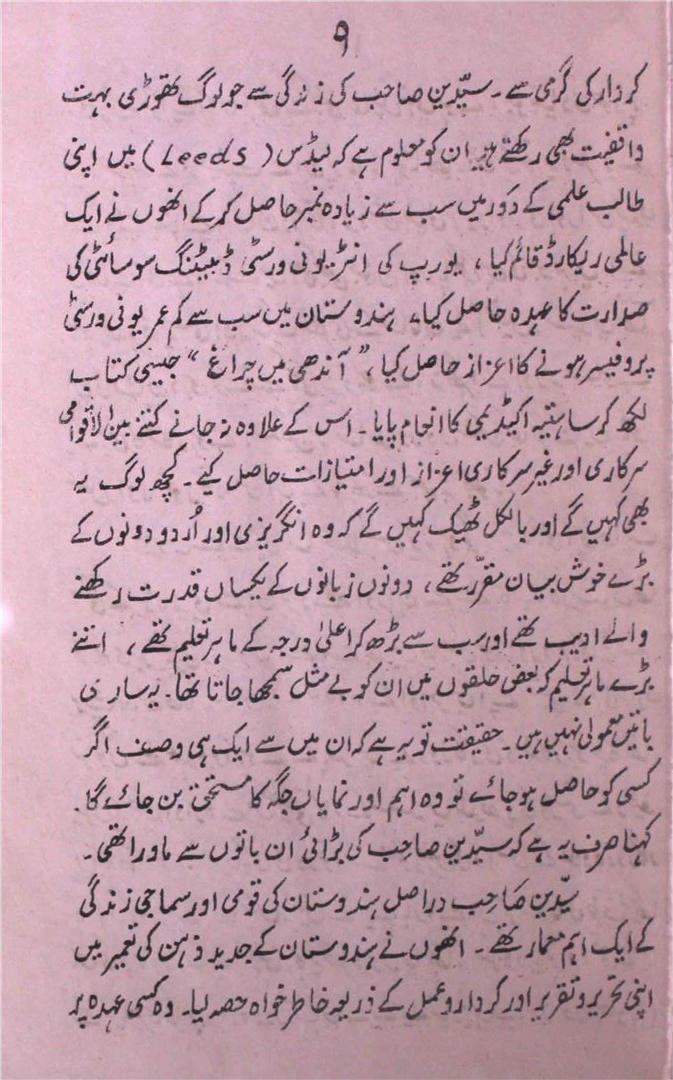 ۹
کردار کی گرمی سے ۔ سیّدین صاحب کی زندگی سے جو لوگ تھوڑی بہت
واقفیت بھی رکھتے ہیں ان کو معلوم ہے کہ لیڈس (Leeds) میں اپنی
طالب علمی کے دَور میں سب سے زیادہ نمبر حاصل کر کے انھوں نے ایک
عالمی ریکارڈ قائم کیا ، یورپ کی انٹر یونی ورسٹی ڈبیٹنگ سوسائٹی کی
صدارت کا عہدہ حاصل کیا، ہندوستان میں سب سے کم عمر یونی ورسٹی
پروفیسر ہونے کا اعزاز حاصل کیا ، ”آندھی میں چراغ“ جیسی کتاب
لکھ کر ساہتیہ اکیڈیمی کا انعام پایا ۔ اس کے علاوہ نہ جانے کتنے بین الاقوامی
سرکاری اور غیر سرکاری اعزاز اور امتیازات حاصل کیے ۔ کچھ لوگ یہ
بھی کہیں گے اور بالکل ٹھیک کہیں گے کہ وہ انگریزی اور اُردو دونوں کے
بڑے خوش بیان مقرّر تھے ، دونوں زبانوں کے یکساں قدرت رکھنے
والے ادیب تھے اور سب سے بڑھ کر اعلیٰ درجہ کے ماہر تعلیم تھے ، اتنے
بڑے ماہر تعلیم کہ بعض حلقوں میں ان کو بے مثل سمجھا جاتا تھا۔ یہ ساری
باتیں معمولی نہیں ہیں ۔ حقیقت تو یہ ہے کہ ان میں سے ایک ہی وصف اگر
کسی کو حاصل ہو جائے تو وہ اہم اور نمایاں جگہ کا مستحق بن جائے گا ۔
کہنا صرف یہ ہے کہ سیّدین صاحب کی بڑائی ان باتوں سے ماورا تھی ۔
سیّدین صاحب دراصل ہندوستان کی قومی اور سماجی زندگی
کے ایک اہم معمار تھے ۔ انھوں نے ہندوستان کے جدید ذہن کی تعمیر میں
اپنی تحریر و تقریر اور کردار و عمل کے ذریعہ خاطر خواہ حصہ لیا ۔ وہ کسی عہدہ پر